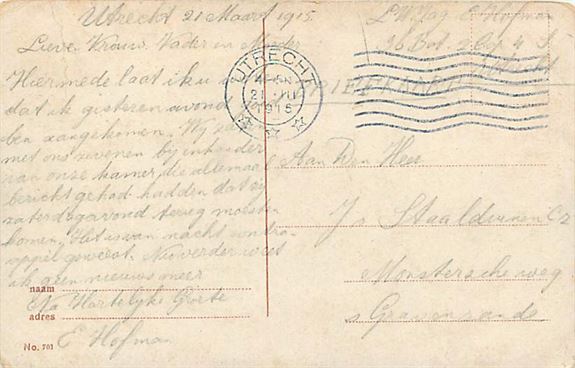 Utrecht 21 Maart 1915
Lieve Vrouw, Vader en Moeder
Hiermede laat ik u
dat ik gisteren avond
ben aangekomen. Wij
met ons zevenen by inhouder
van onze kamer die allemaal
bericht gehad hadden dat zy
zaterdagavond terug moesten
komen. Het is van nacht
appel geweest. Nu verder weet
ik geen nieuws meer
naam
Na Hartelyke Groete
adres
E Hofman
No. 701
E Hofman
4 5
Utrecht
UTRECHT
21 III
1915
BRIEFKAART
Aan Den Heer
Js Staalduinen Cz
Monstersche weg
s Gravenzande